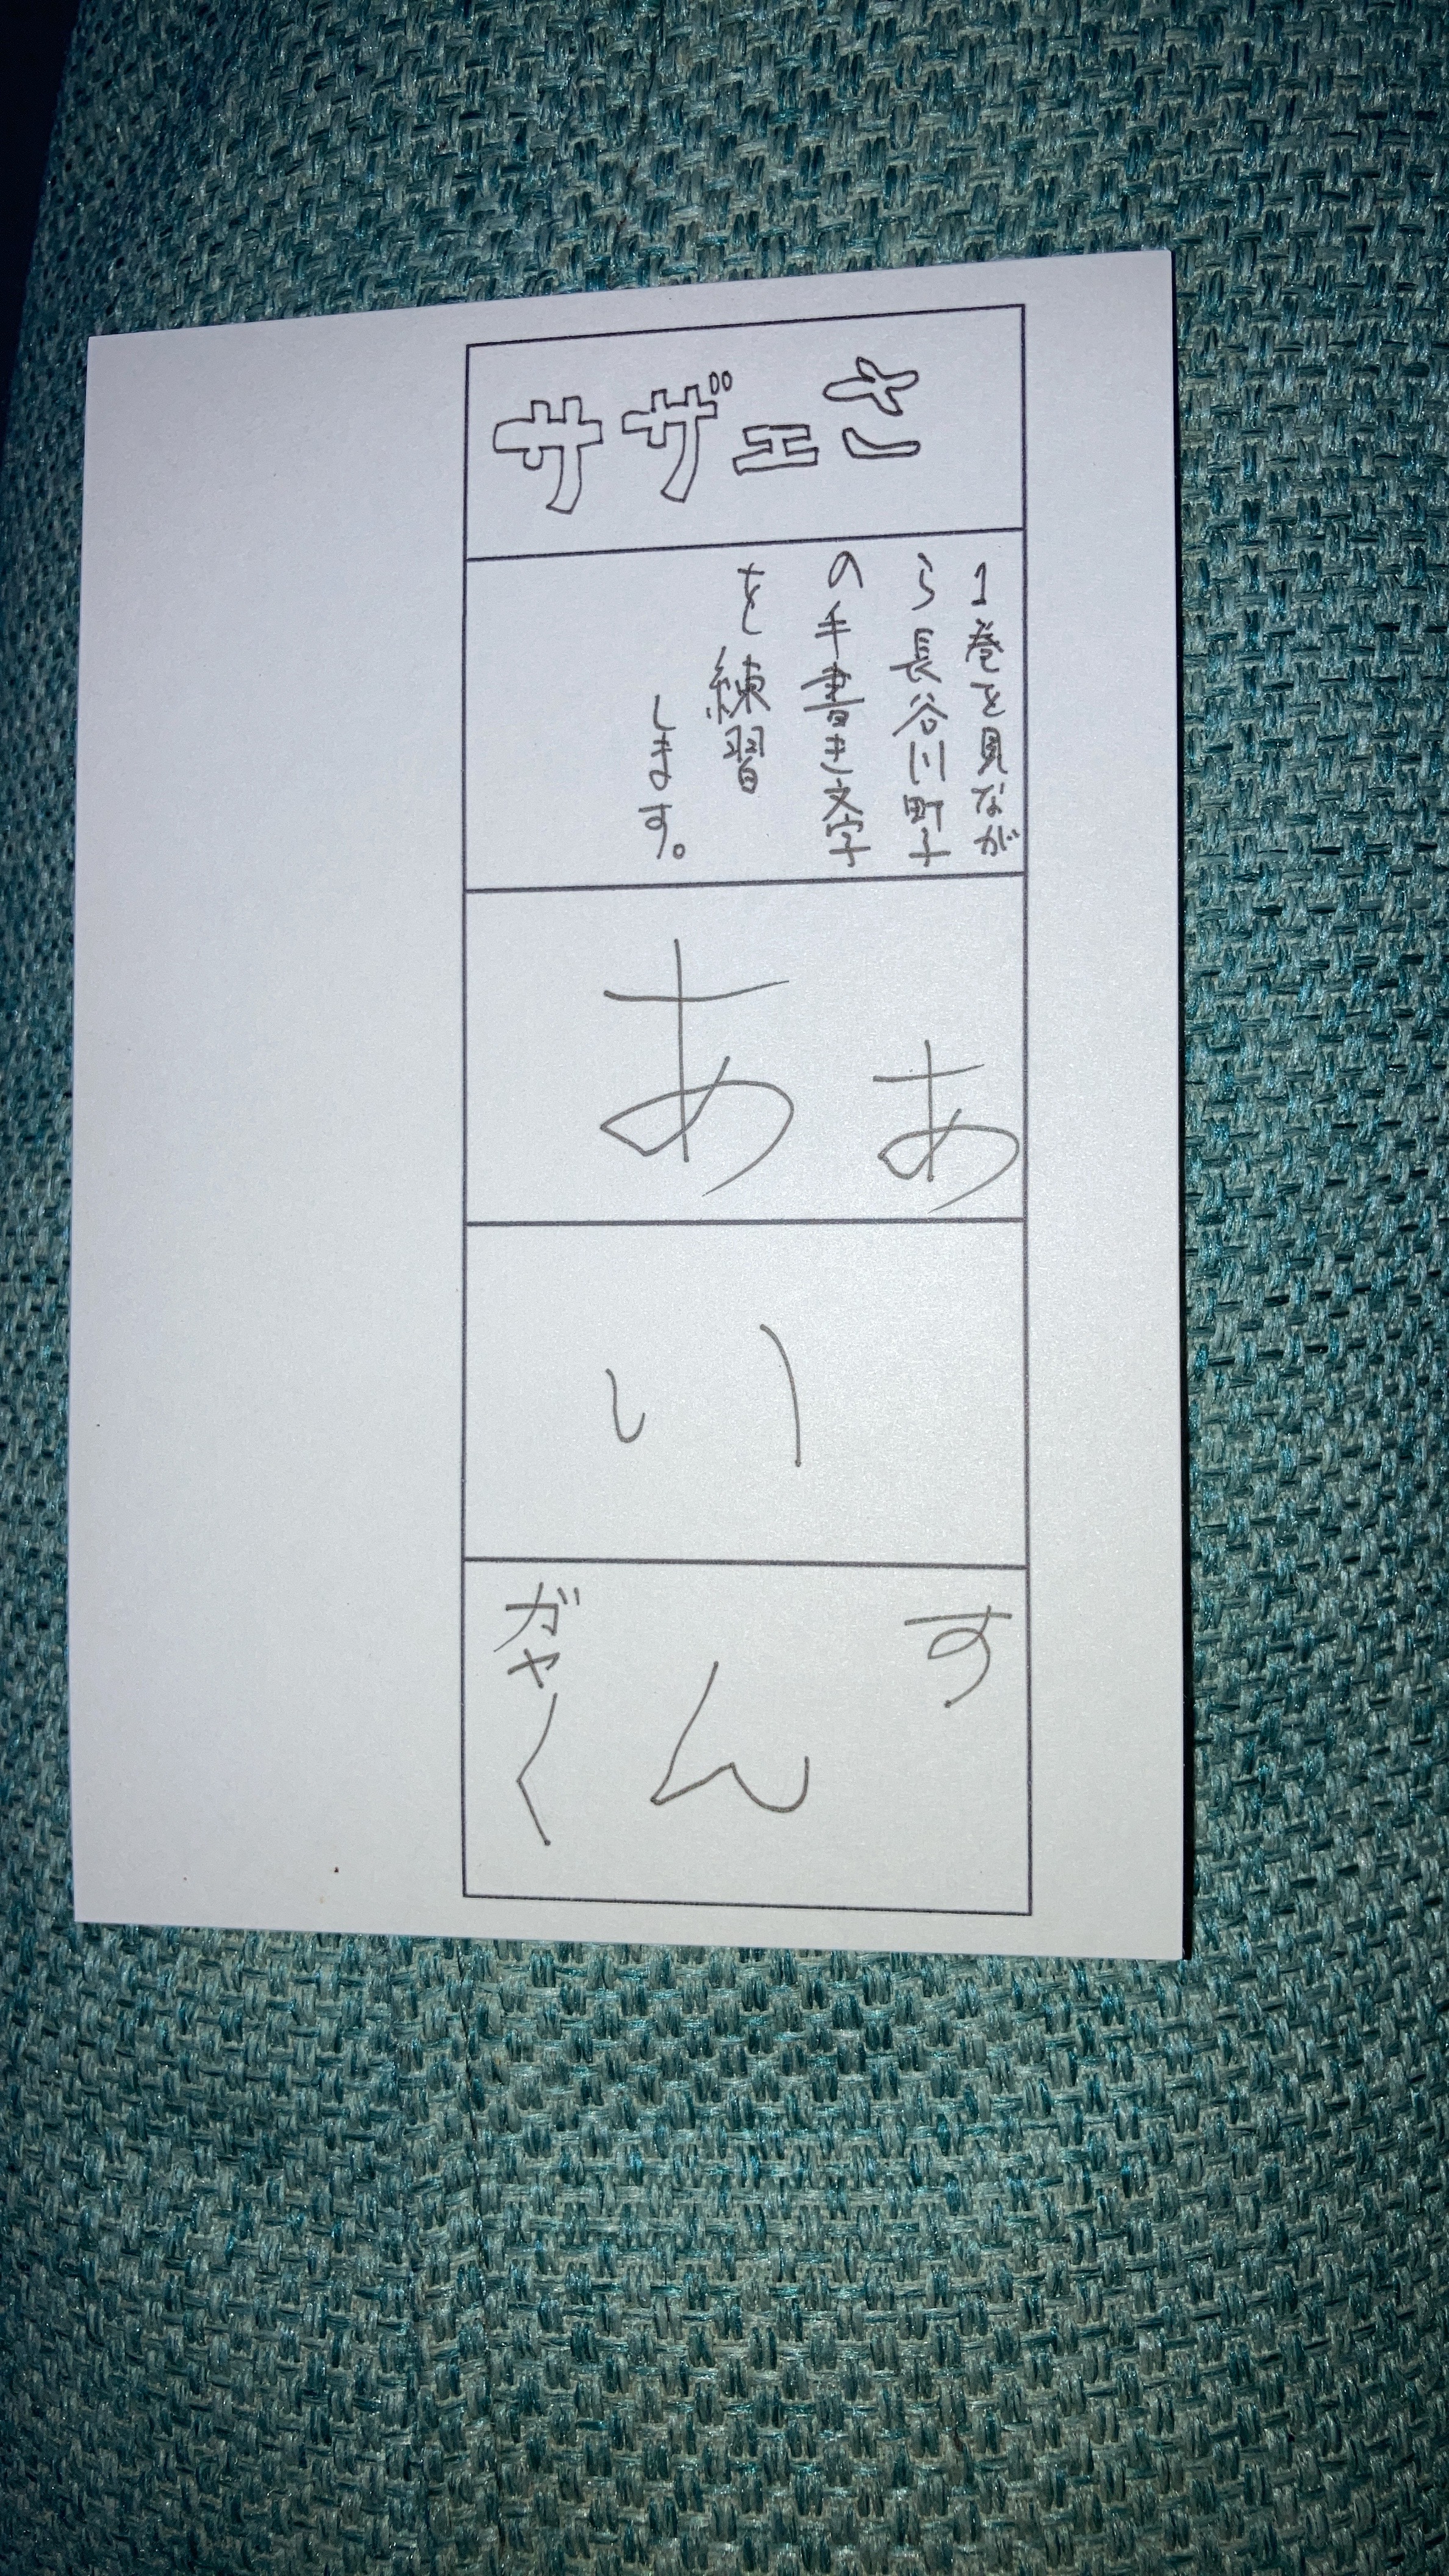 サザエさ
1巻を見なが
ら長谷川町子
の手書き文字
を練習
します。
あ
あ
い
す
ん
ガャく